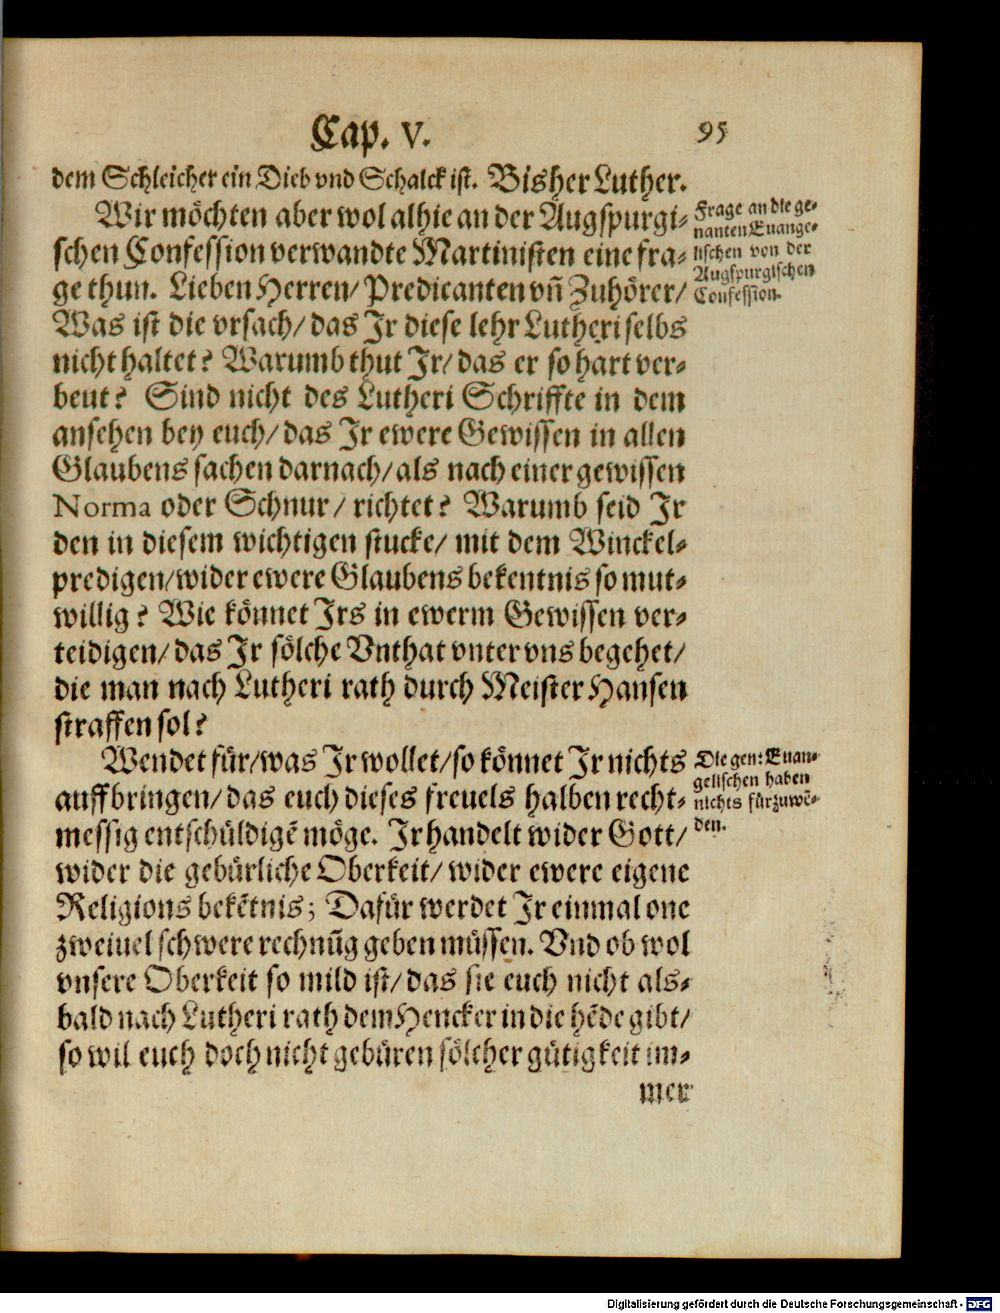 Cap. V. 95
dem Schleicher ein Dieb vnd Schalck ist. Bisher Luther.
Wir möchten aber wol alhie an der Augspurgi⸗
schen Confession verwandte Martinisten eine fra⸗
ge thun. Lieben Herren/ Predicanten vñ Zuhörer/
Was ist die vrsach/ das Ir diese lehr Lutheri selbs
nicht haltet? Warumb thut Ir/ das er so hart ver⸗
beut? Sind nicht des Lutheri Schriffte in dem
ansehen bey euch/ das Ir ewere Gewissen in allen
Glaubens sachen darnach/ als nach einer gewissen
Norma oder Schnur/ richtet? Warumb seid Ir
den in diesem wichtigen stucke/ mit dem Winckel⸗
predigen/ wider ewere Glaubens bekentnis so mut⸗
willig? Wie könnet Irs in ewerm Gewissen ver⸗
teidigen/ das Ir sölche Vnthat vnter vns begehet/
die man nach Lutheri rath durch Meister Hansen
straffen sol?
Frage an die ge⸗
nanten Euange⸗
lischen von der
Augspurgischen
Confession.
Wendet für/ was Ir wollet/ so könnet Ir nichts
auffbringen/ das euch dieses freuels halben recht⸗
messig entschüldigẽ möge. Ir handelt wider Gott/
wider die gebürliche Oberkeit/ wider ewere eigene
Religions bekẽtnis; Dafür werdet Ir einmal one
zweiuel schwere rechnũg geben müssen. Vnd ob wol
vnsere Oberkeit so mild ist/ das sie euch nicht als⸗
bald nach Lutheri rath dem Hencker in die hẽde gibt/
so wil euch doch nicht gebüren sölcher gütigkeit im⸗
mer
Die gen: Euan⸗
gelischen haben
nichts fürzuwẽ⸗
den.
Digitalisierung gefördert durch die Deutsche Forschungsgemeinschaft - DFG